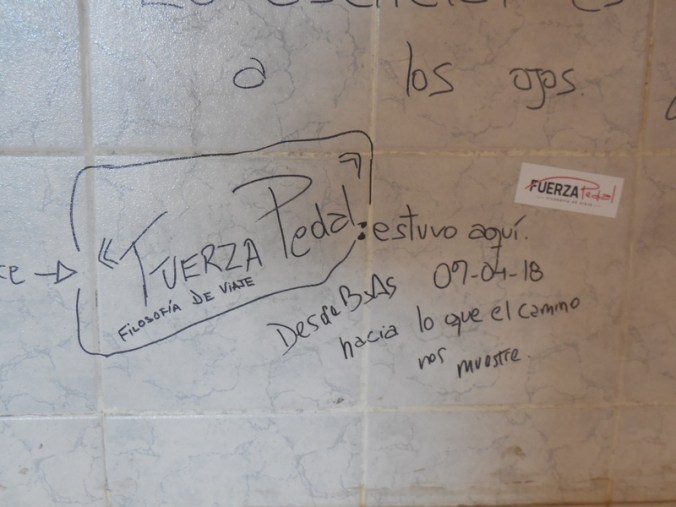 a los ojos.
« FUERZA Pedal »
FILOSOFÍA DE VIAJE
estuvo aquí.
09-04-18
Desde BsAs
hacia lo que el camino
nos muestre.
FUERZA Pedal
FILOSOFÍA DE VIAJE